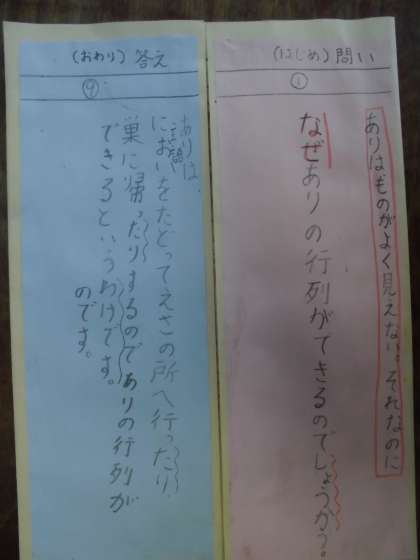 (はじめ) 問い
①
ありはものがよく見えない。それなのに
なぜありの行列ができるのでしょうか。
(おわり) 答え
⑨
ありは、
においをたどってえさの所へ行ったり、
巣に帰ったりするのでありの行列が
できるというわけです。
のです。